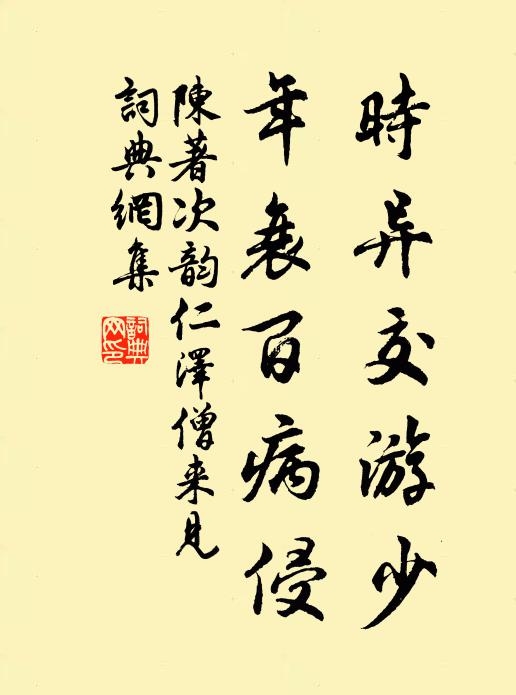 時异交游少
年衰百病侵
陳著次韵仁澤僧来見
詞典網集
詞典网印